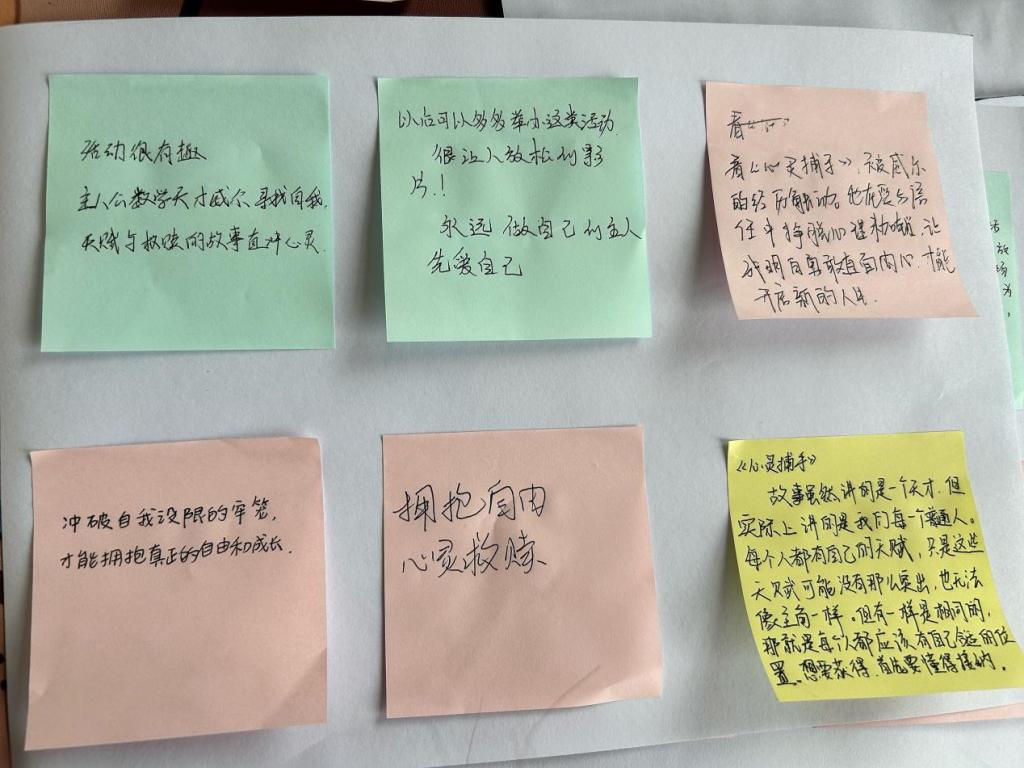 活动很有趣
主人公数学天才威尔寻找自我,
天赋与救赎的故事直冲心灵.
以后可以多多举办这类活动
很让人放松的影
片.!
永远 做自己的主人
先爱自己
看
看《心灵捕手》,被威尔
的经历触动。他在爱与信
任中挣脱心理枷锁,让
我明白勇敢直面内心,才能
开启新的人生.
冲破自我设限的牢笼,
才能拥抱真正的自由和成长.
拥抱自由
心灵救赎
《心灵捕手》
故事虽然讲的是一个天才,但
实际上讲的是我们每一个普通人。
每个人都有自己的天赋,只是这些
天赋可能没有那么突出,也无法
像主角一样。但有一样是相同的,
那就是每个人都应该有自己合适的位
置。想要获得,首先要懂得接纳。